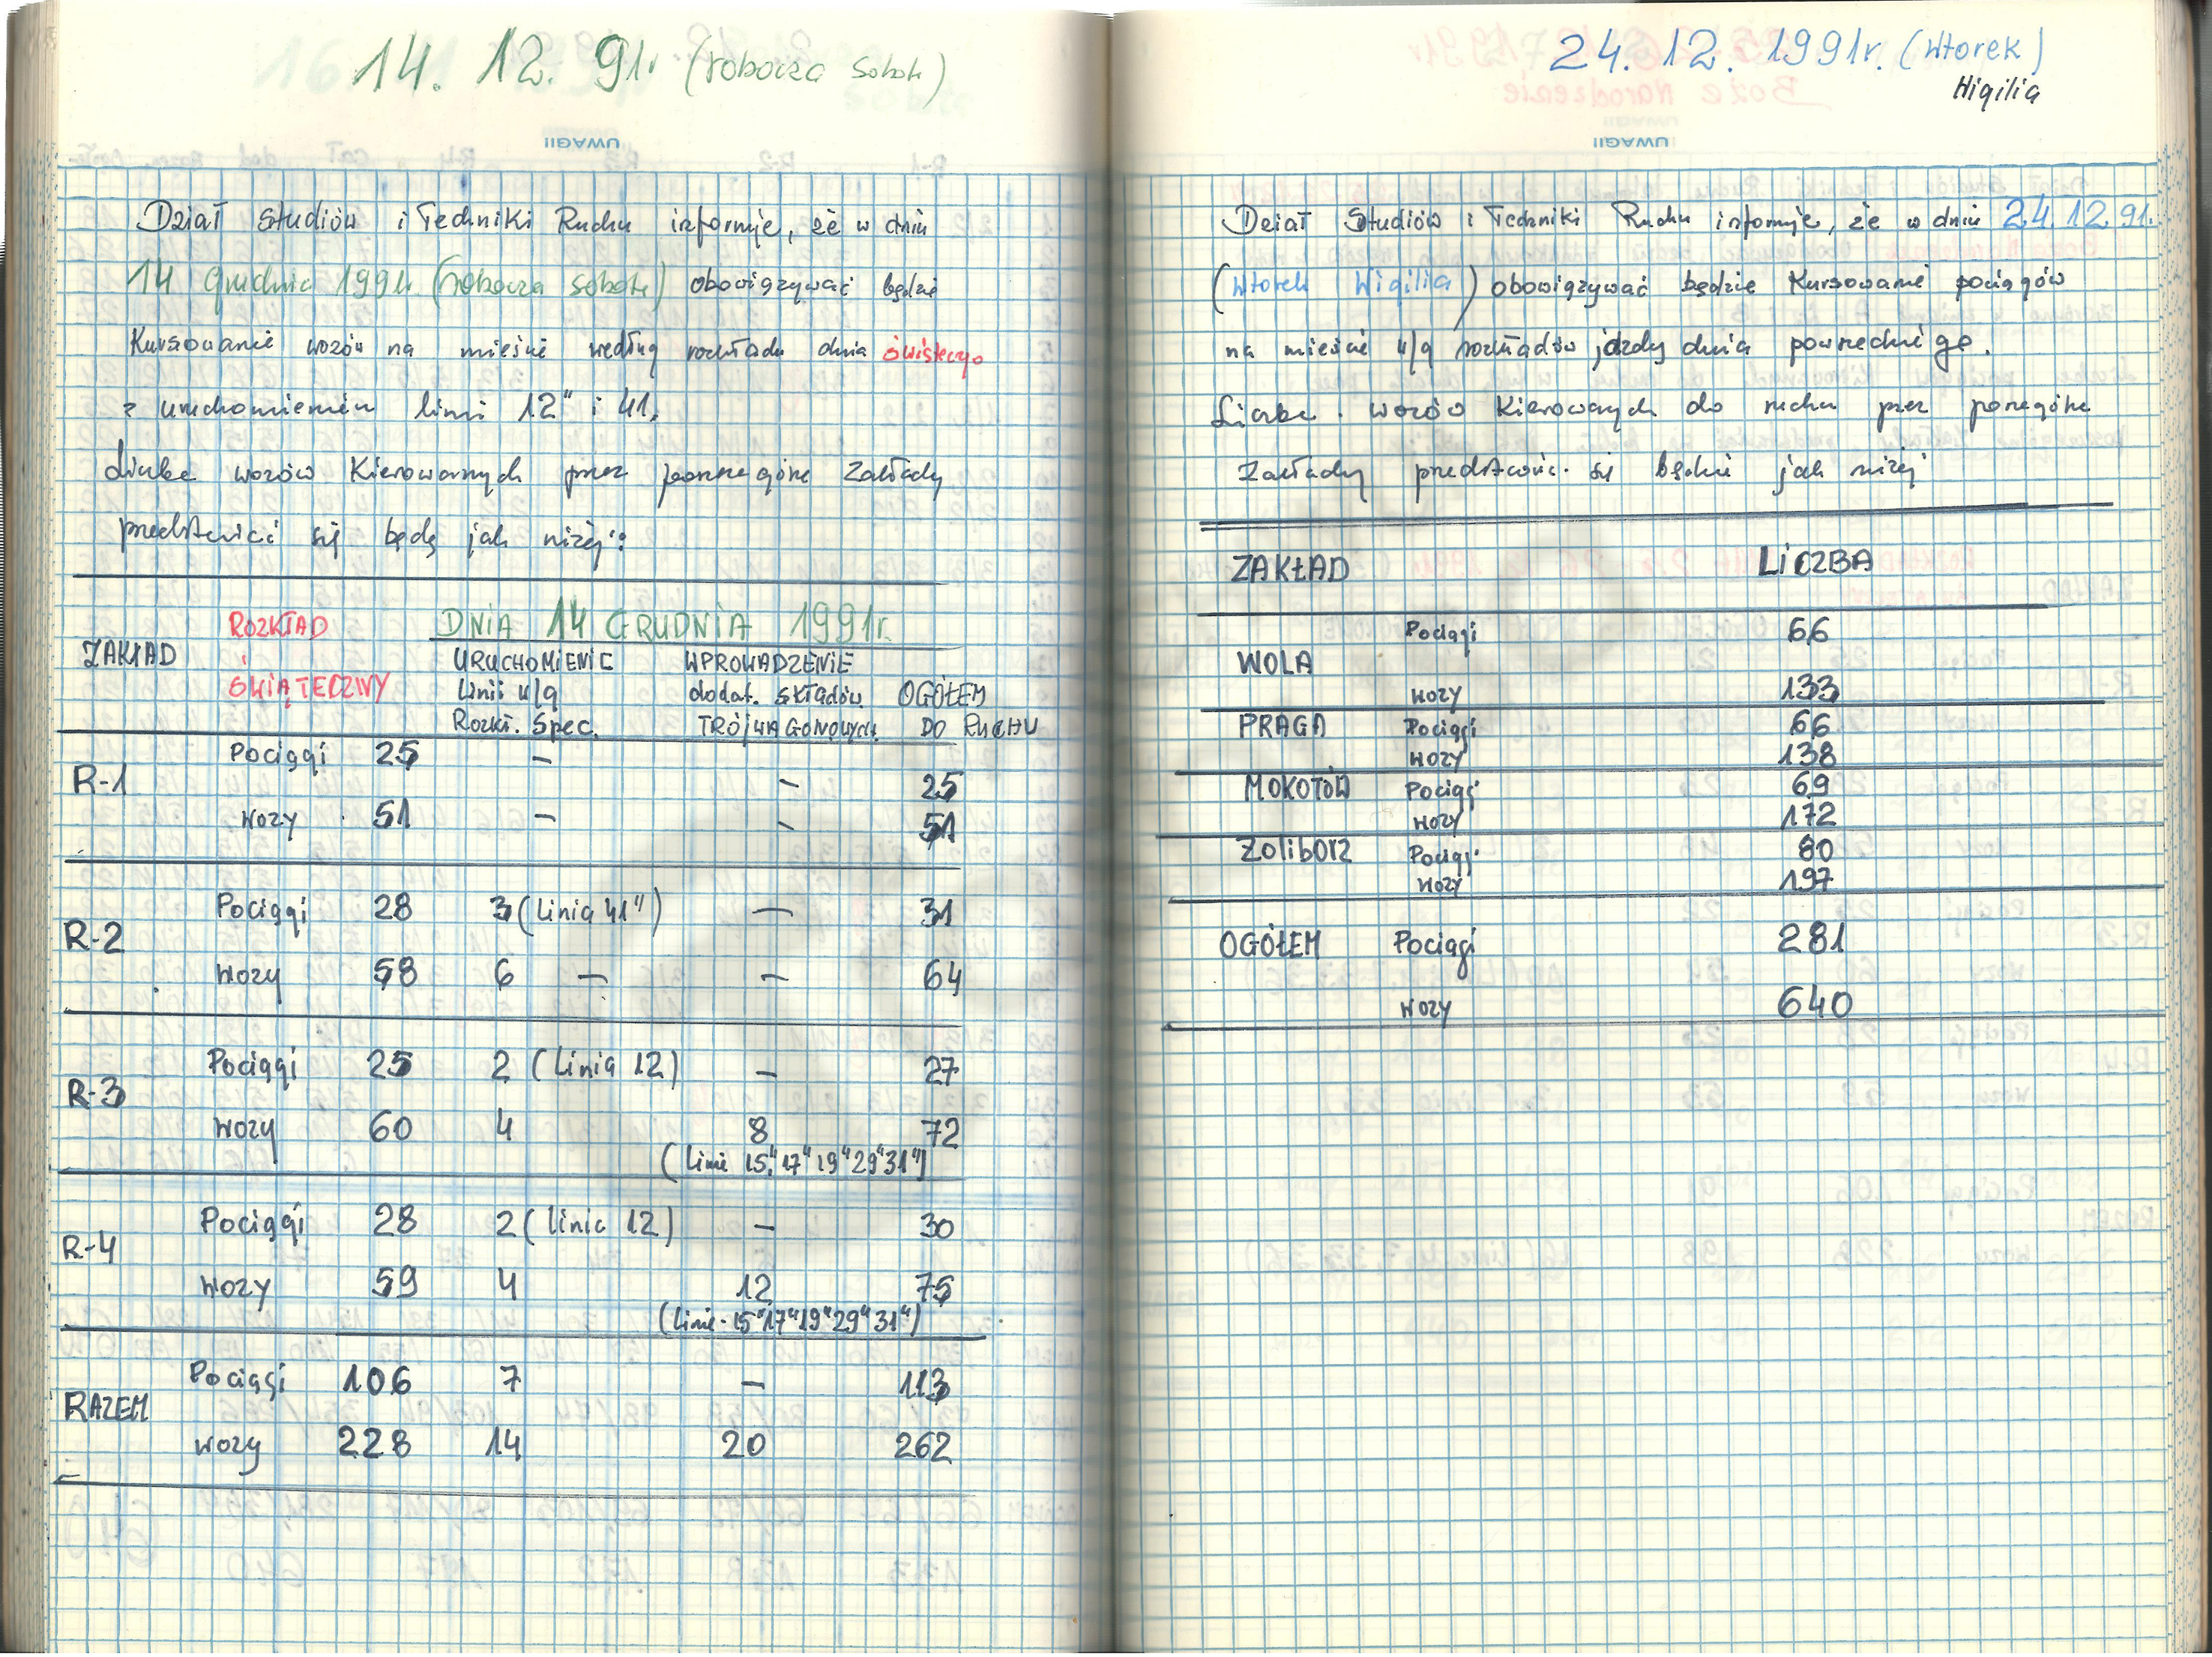 14. 12. 91r (robocza sobota)
UWAGI!
Dział Studiów i Techniki Ruchu informuje, że w dniu
14 grudnia 1991r. (robocza sobota) obowiązywać będzie
Kursowanie wozów na mieście według rozkładu dnia świątecznego
z uruchomieniem linii 12" i 41.
Liczba wozów Kierowanych przez poszczególne Zakłady
przedstawiać się będą jak niżej:
ZAKŁAD ROZKŁAD ŚWIĄTECZNY DNIA 14 GRUDNIA 1991r.
URUCHOMIENIE WPROWADZENIE
Linii w/g dodat. SKŁADÓW OGÓŁEM
Rozkł. Spec. TRÓJWAGONOWYCH DO RUCHU
R-1 Pociągi 25 – – 25
wozy 51 – – 51
R-2 Pociągi 28 3 (Linia 41") – 31
wozy 58 6 – – 64
R-3 Pociągi 25 2 (Linia 12) – 27
wozy 60 4 8 72
(Linie 15" 17" 19" 29" 31")
R-4 Pociągi 28 2 (linia 12) – 30
wozy 59 4 12 75
(Linie 15" 17" 19" 29" 31")
RAZEM Pociągi 106 7 – 113
wozy 228 14 20 262
24. 12. 1991r. (wtorek)
Wigilia
UWAGI!
Dział Studiów i Techniki Ruchu informuje, że w dniu 24.12.91.
(Wtorek Wigilia) obowiązywać będzie Kursowanie pociągów
na mieście w/g rozkładów jazdy dnia powszedniego.
Liczba wozów Kierowanych do ruchu przez poszczególne
Zakłady przedstawiać się będzie jak niżej
ZAKŁAD LICZBA
WOLA Pociągi 66
wozy 133
PRAGA Pociągi 66
wozy 138
MOKOTÓW Pociągi 69
wozy 172
Żoliborz Pociągi 80
wozy 197
OGÓŁEM Pociągi 281
wozy 640